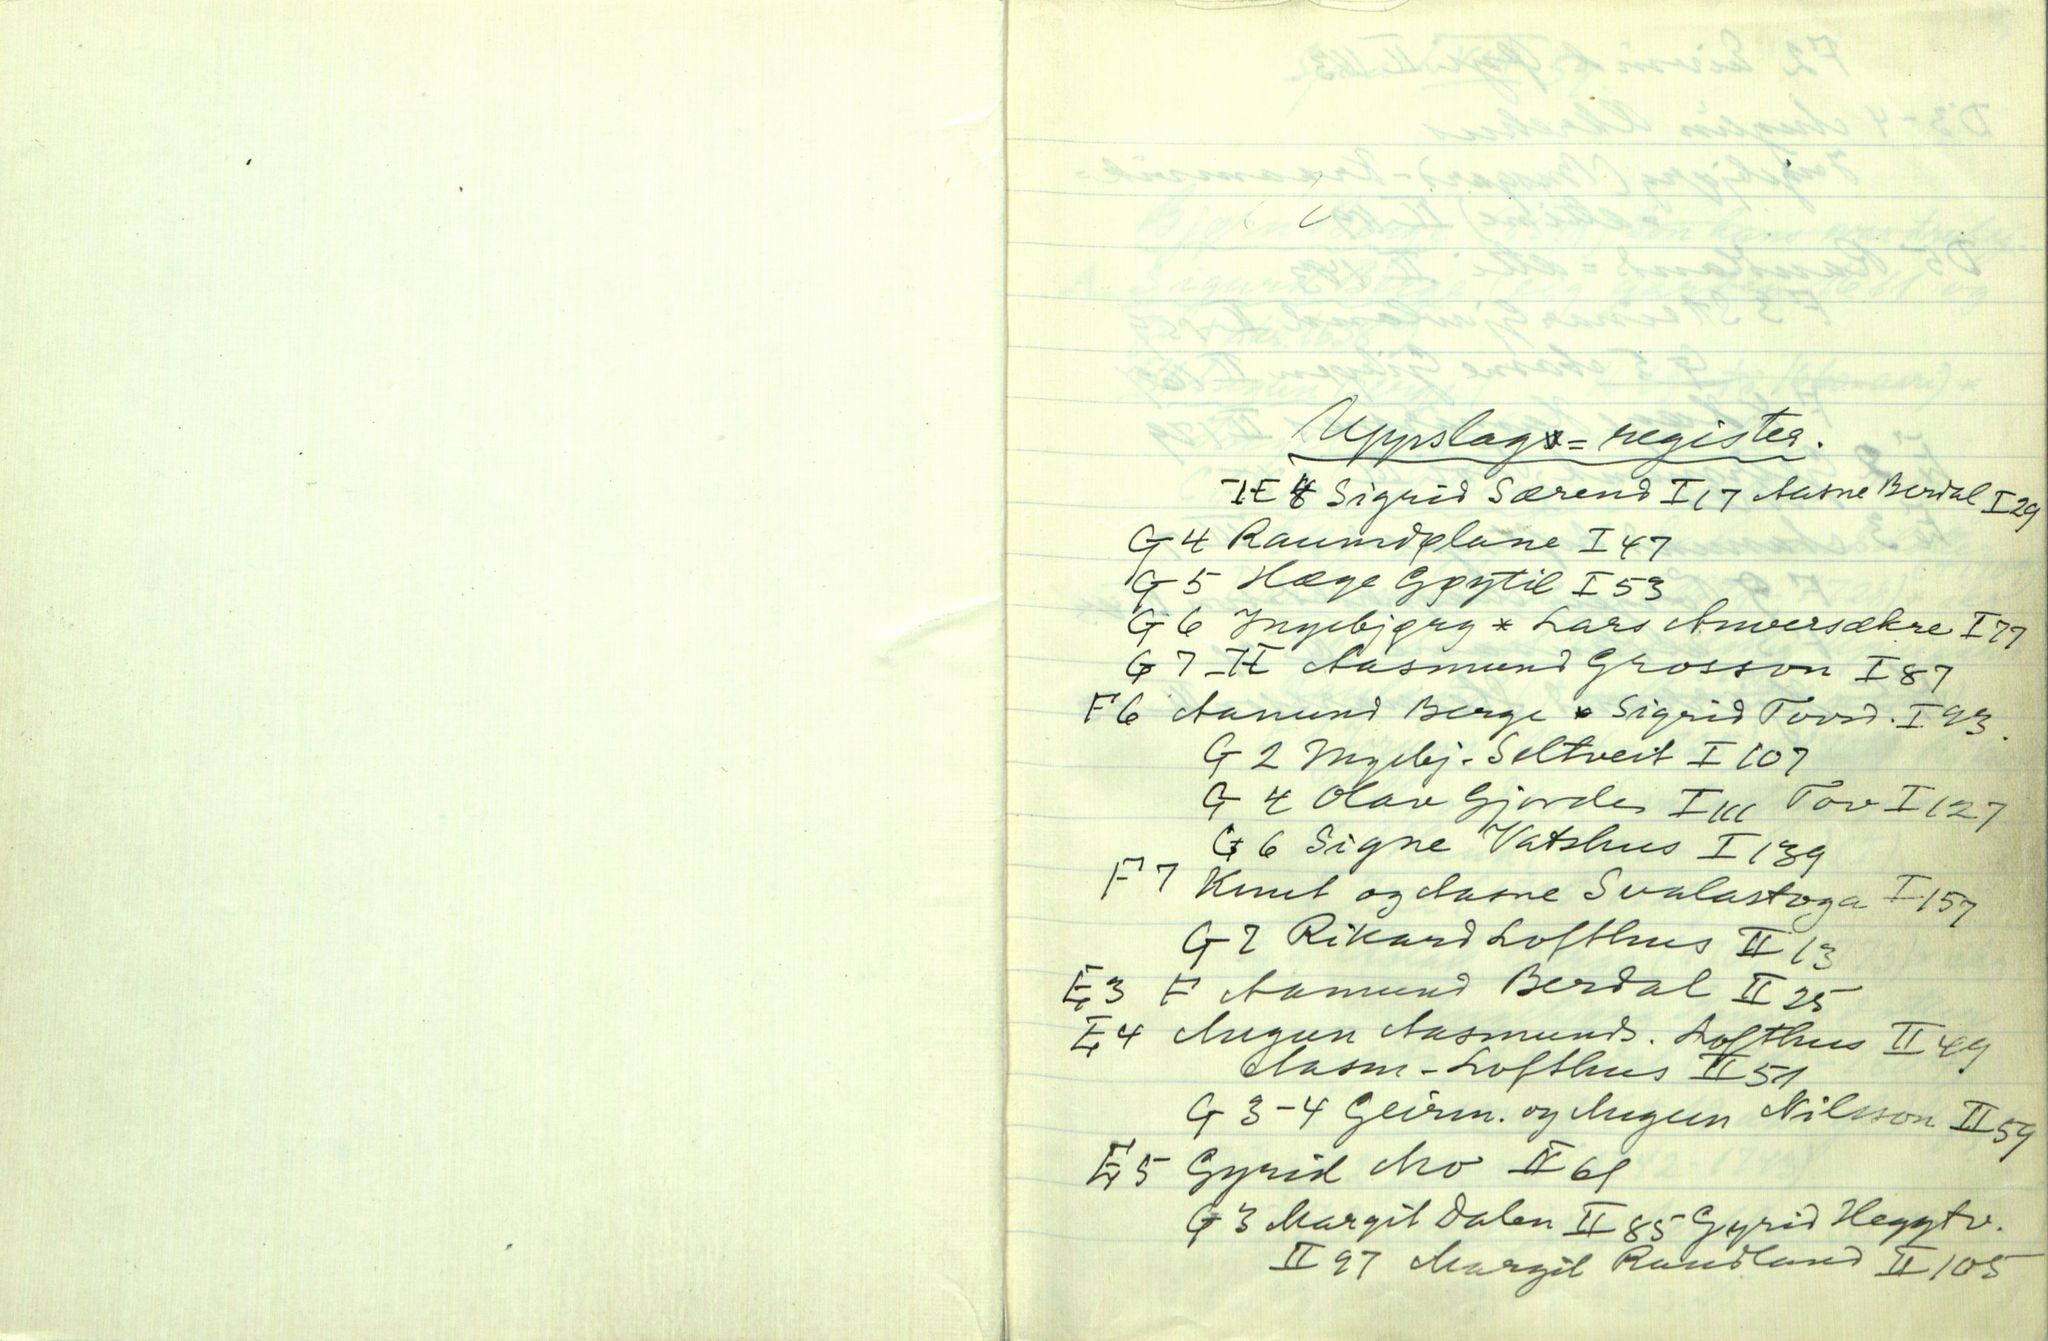 Uppslags=register.
H 8 Sigrid Særend I 17 Aasne Berdal I 29
G 4 Raundølane I 47
G 5 Hæge Gøytil I 53
G 6 Ingebjørg * Lars Anversækre I 77
G 7 - H Aasmund Grosson I 87
F 6 Aanund Berge * Sigrid Tovsd. I 93.
G 2 Ingebj. Seltveit I 107
G 4 Olav Gjordes I 111 Tov I 127
G 6 Signe Vatshus I 139
F 7 Knut og Aasne Svalastoga I 157
G 2 Rikard Lofthus II 13
E 3 F Aamund Berdal II 25
E 4 Augun Aasmunds. Lofthus II 49
Aasm - Lofthus II 51
G 3-4 Geirm. og Augun Nilsson II 59
E 5 Gyrid Mo II 61
G 3 Margit Dalen II 85 Gyrid Heggtv.
II 97 Margit Raudland II 105